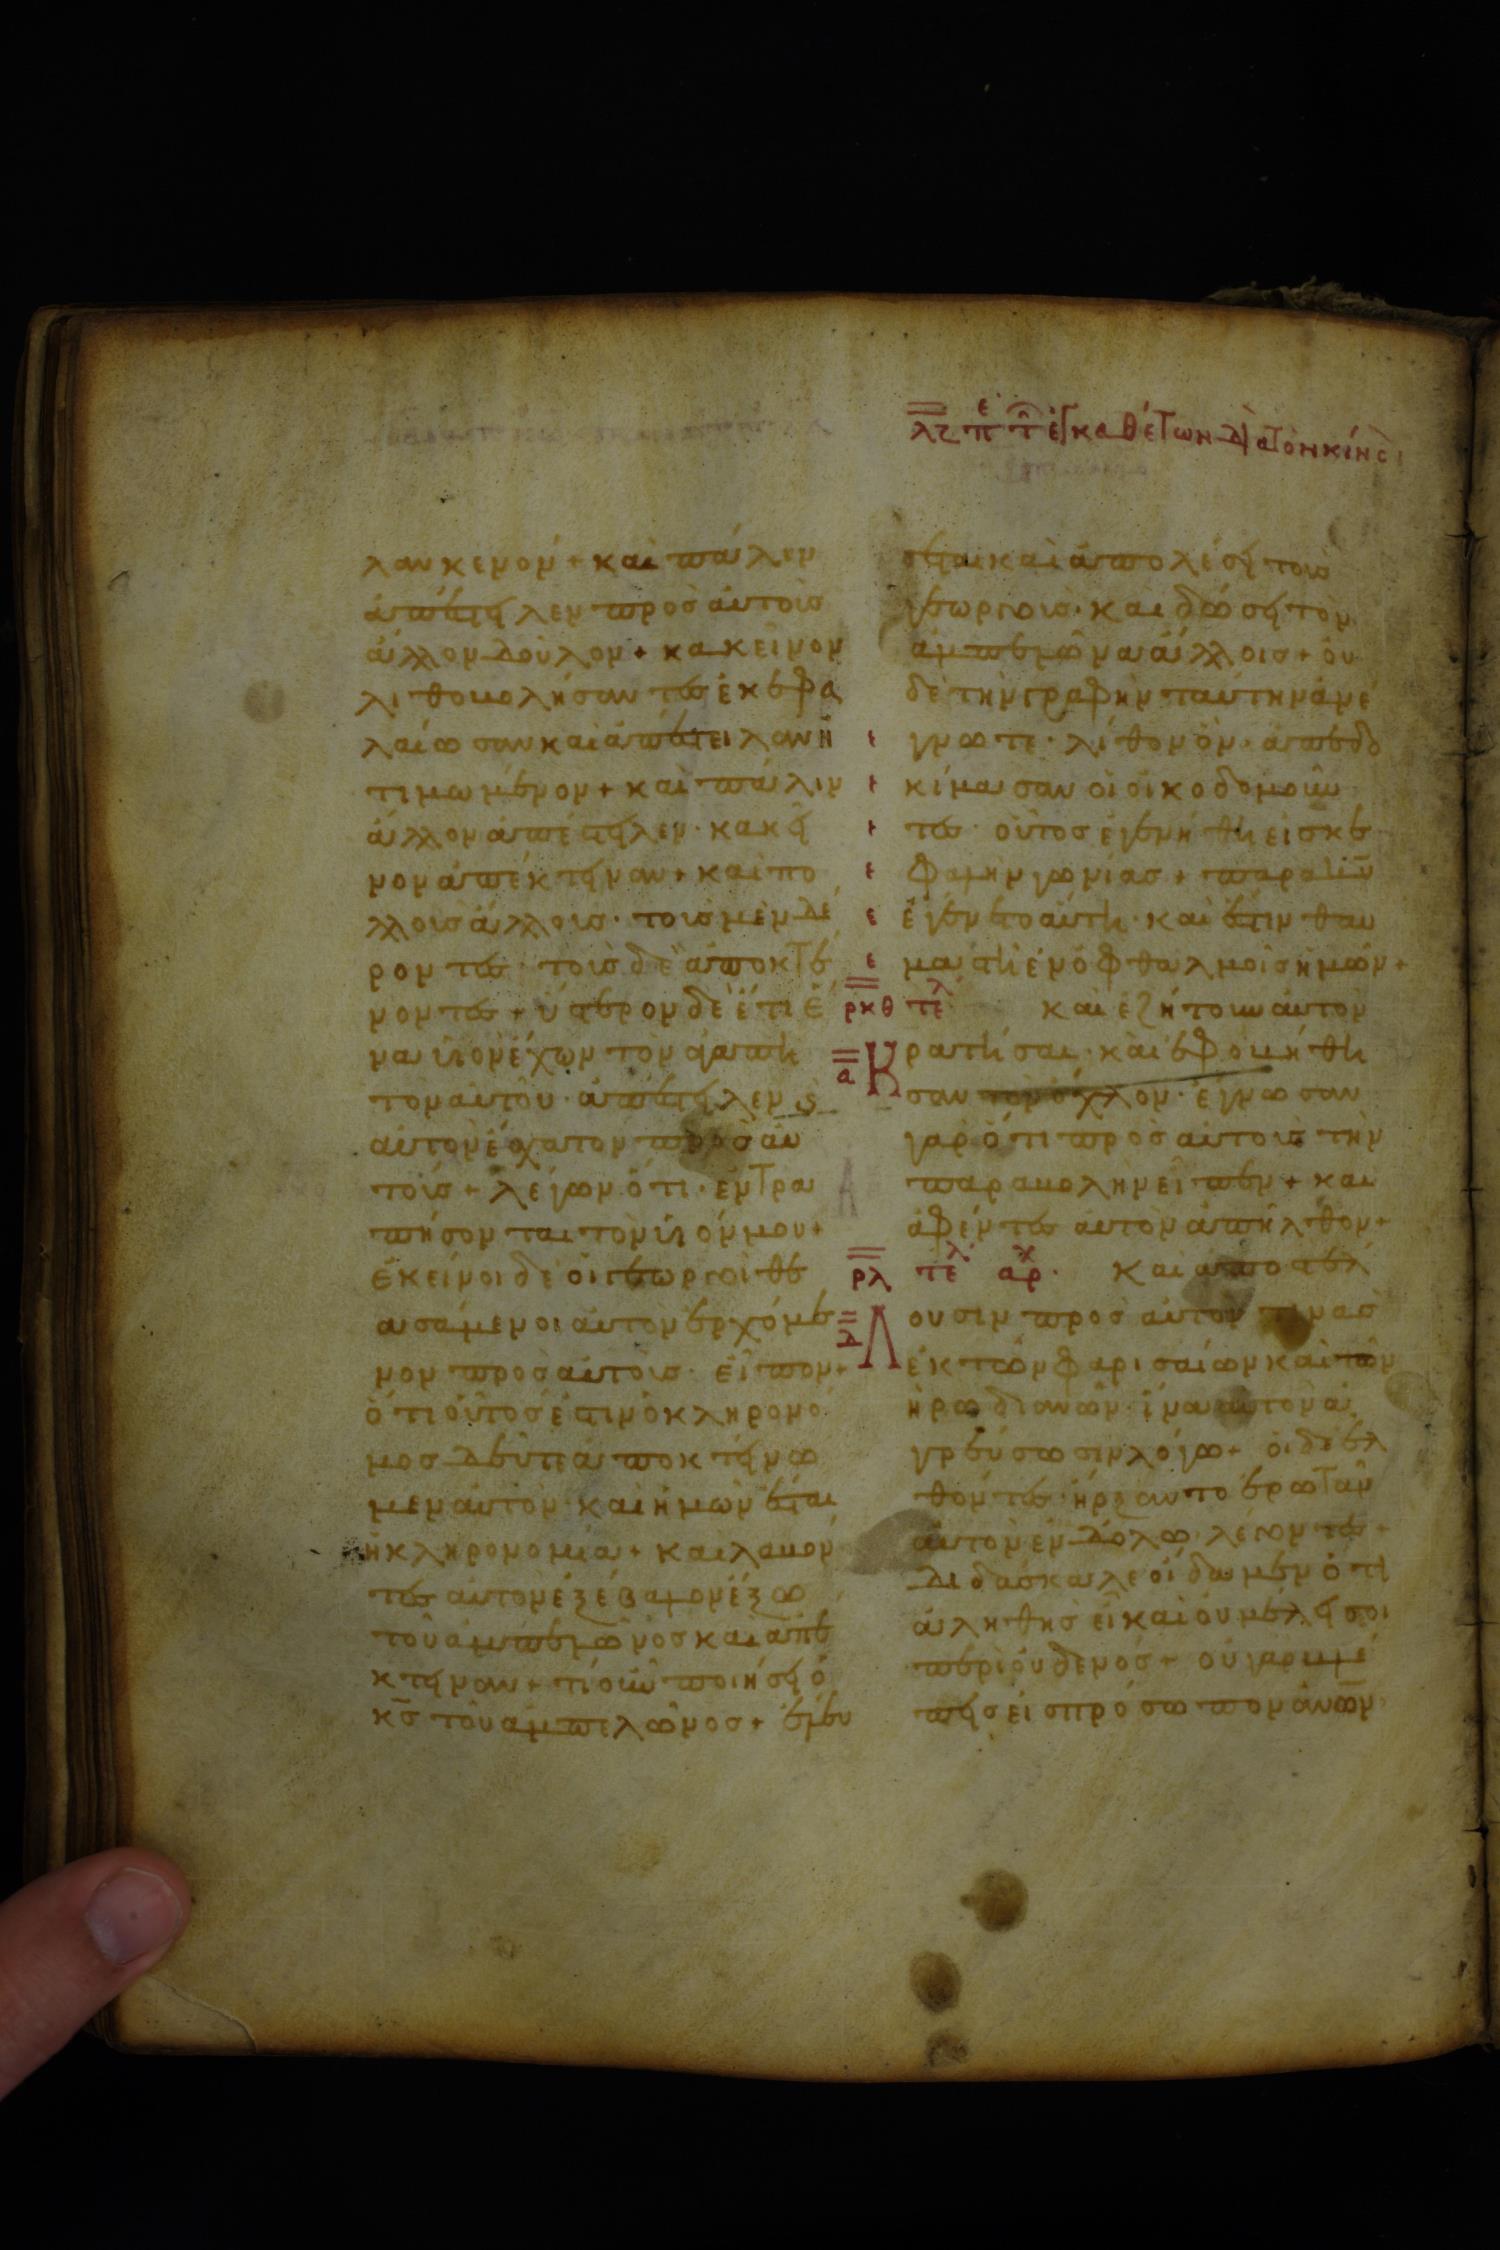 λϛ π̅ε τ̅ ἐγκαθέτων διὰ τὸν κίνσον
λαν κενόν + καὶ πάλιν
ἀπέστειλεν πρὸς αὐτοὺς
ἄλλον δοῦλον + κἀκεῖνον
λιθοβολήσαντες ἐκεφα
λαίωσαν καὶ ἀπέστειλαν ἠ
τιμωμένον + καὶ πάλιν
ἄλλον ἀπέστειλεν · κἀκεῖ
νον ἀπέκτειναν + καὶ πο
λλοὺς ἄλλους · τοὺς μὲν δέ
ροντες · τοὺς δὲ ἀποκτέ
νοντες + ὕστερον δὲ ἔτι ἕ
να υἱὸν ἔχων τὸν ἀγαπη
τὸν αὐτοῦ · ἀπέστειλεν
αὐτὸν ἔσχατον πρὸς αὐ
τούς + λέγων ὅτι · ἐντρα
πήσονται τὸν υἱόν μου +
ἐκεῖνοι δὲ οἱ γεωργοὶ θε
ασάμενοι αὐτὸν ἐρχόμε
νον πρὸς αὐτούς · εἶπον +
ὅτι οὗτός ἐστιν ὁ κληρονό
μος δεῦτε ἀποκτείνω
μεν αὐτόν · καὶ ἡμῶν ἔσται
ἡ κληρονομία + καὶ λαβόν
τες αὐτὸν ἐξέβαλον ἔξω
τοῦ ἀμπελῶνος καὶ ἀπέ
κτειναν + τί οὖν ποιήσει ὁ
κ̅ς̅ τοῦ ἀμπελῶνος + ἐλεύ
σεται καὶ ἀπολέσει τοὺς
γεωργούς · καὶ δώσει τὸν
ἀμπελῶνα ἄλλοις + οὐ
δὲ τὴν γραφὴν ταύτην ἀνέ
γνωτε · λίθον ὃν · ἀπεδο
κίμασαν οἱ οἰκοδομοῦν
τες · οὗτος ἐγενήθη εἰς κε
φαλὴν γωνίας + παρὰ κ̅υ̅
ἐγένετο αὕτη · καὶ ἔστιν θαυ
μαστὴ ἐν ὀφθαλμοῖς ἡμῶν +
ρκθ τελ καὶ ἐζήτουν αὐτὸν
α Κρατῆσαι · καὶ ἐφοβήθη
σαν τὸν ὄχλον · ἔγνωσαν
γὰρ ὅτι πρὸς αὐτοὺς τὴν
παραβολὴν εἶπεν + καὶ
ἀφέντες αὐτὸν ἀπῆλθον +
ρλ τελ αρχ · Καὶ ἀποστέλ
λ Λουσιν πρὸς αὐτόν τινας
ἐκ τῶν φαρισαίων καὶ τῶν
ἡρωδιανῶν · ἵνα αὐτὸν ἀ
γρεύσωσιν λόγω + οἱ δὲ ἐλ
θόντες · ἤρξαντο ἐρωτᾶν
αὐτὸν ἐν δόλω λέγοντες +
διδάσκαλε οἴδαμεν ὅτι
ἀληθὴς εἶ καὶ οὐ μέλει σοι
περὶ οὐδενός + οὐ γὰρ βλέ
πεις εἰς πρόσωπον ἀν̅ω̅ν